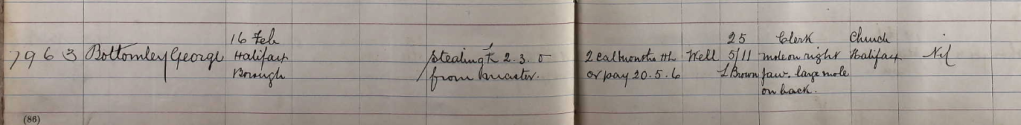 16 Feb 25 Clerk Church
7963 Bottomley George Halifax Stealing £2.3.0 2 cal months Hl Well 5/11 mole on right Halifax Nil
Borough from master. or pay 20.5.6 L Brown jaw. large mole
on back.
(86)